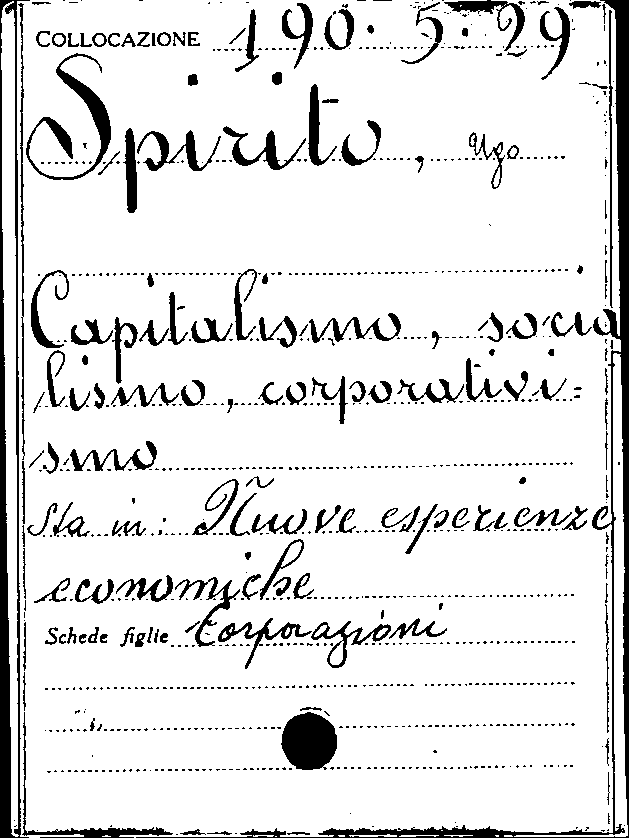 COLLOCAZIONE 190. 5. 29
Spirito, Ugo
Capitalismo, socia
lismo, corporativi=
smo
Sta in: Nuove esperienze
economiche
Schede figlie Corporazioni